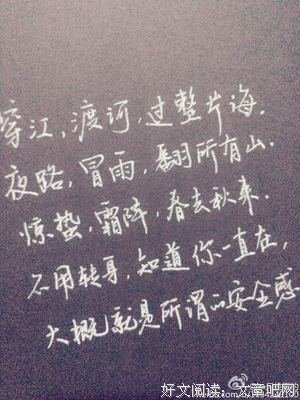 穿江，渡河，过整片海．
夜路，冒雨，翻所有山．
惊蛰，霜阵，春去秋来．
不用转身，知道你一直在，
大概就是所谓的安全感
好文阅读：文章吧网